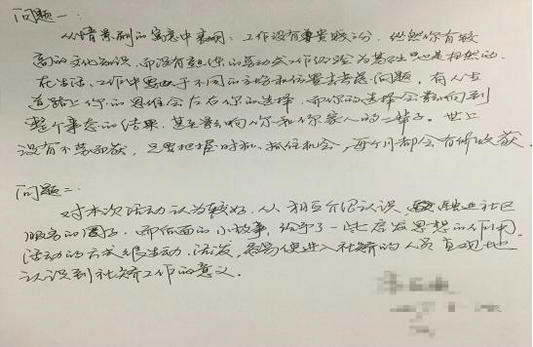 问题一:
从情景剧的寓意中表明:工作没有尊贵贱之分,纵然你有较
高的文化知识,而没有的劳动或工作经验为基础也是枉然的。
在生活、工作中要由于不同的立场和位置去考虑问题,有人生
道路上你的思维会左右你的选择,而你的选择会影响到
整个事态的结果,甚至影响你和你家人的一辈子。世上
没有不劳而获,只要把握时机,抓住机会,每个月都会有所收获。
问题二:
对本次活动认为较好,从相互介绍认识,融进社区
服务的圈子,而后面的小故事,给予了一些启发思想的作用。
活动的方式很生动、活泼,容易使进入社矫的人员直观地
认识到社矫工作的意义。